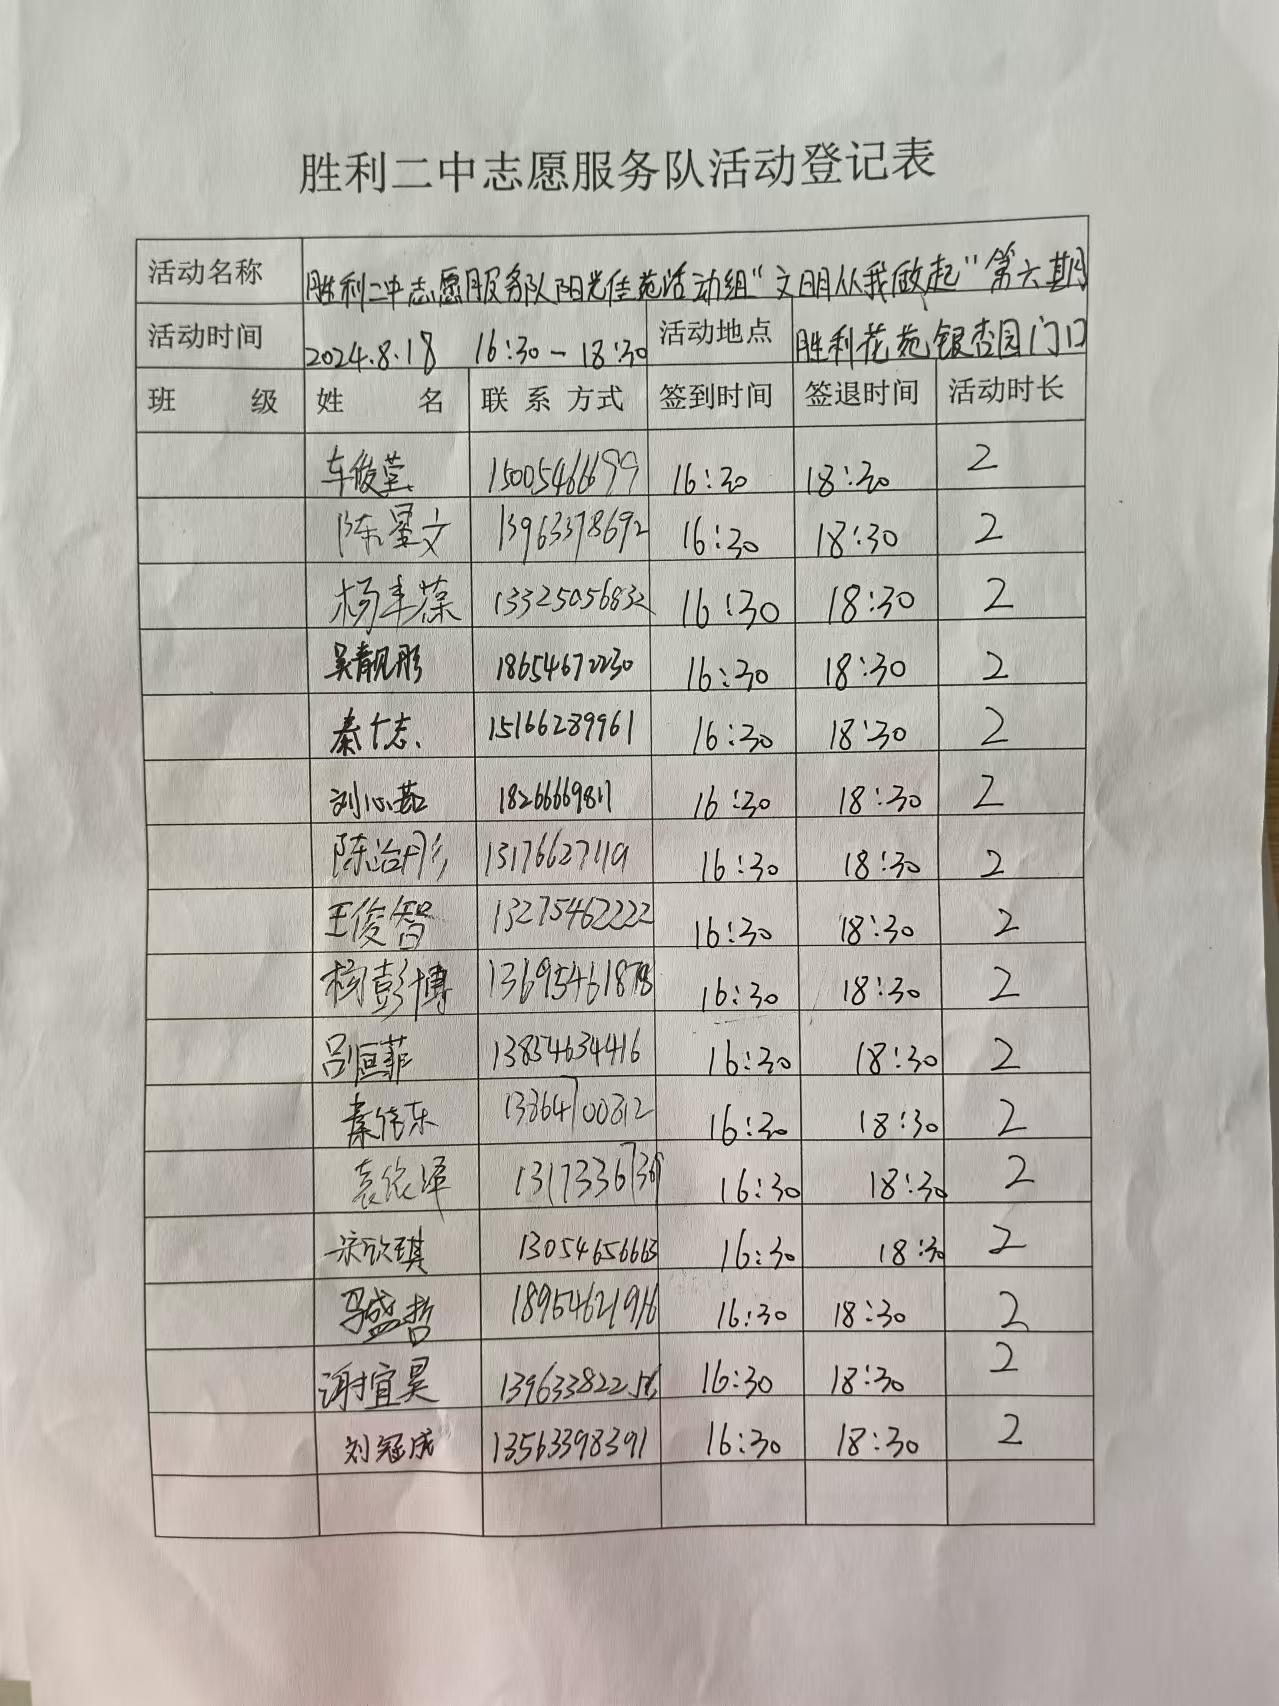 胜利二中志愿服务队活动登记表
活动名称 胜利二中志愿服务队阳光佳苑活动组“文明从我做起”第六期
活动时间 2024.8.18 16:30-18:30 活动地点 胜利花苑银杏园门口
班 级 姓 名 联系方式 签到时间 签退时间 活动时长
车俊莹 15005466699 16:30 18:30 2
陈星文 13963378692 16:30 18:30 2
杨丰葆 13325056832 16:30 18:30 2
吴靓彤 18654672230 16:30 18:30 2
秦 志 15166289961 16:30 18:30 2
刘心茹 18266669811 16:30 18:30 2
陈治彤 16:30 18:30 2
王俊智 13275462222 16:30 18:30 2
杨彭博 16:30 18:30 2
吕恒菲 13854634416 16:30 18:30 2
秦伟东 13864700812 16:30 18:30 2
袁依泽 16:30 18:30 2
宋欣琪 13054656663 16:30 18:30 2
马盛哲 18954621916 16:30 18:30 2
谢宜昊 16:30 18:30 2
刘冠成 13563398391 16:30 18:30 2